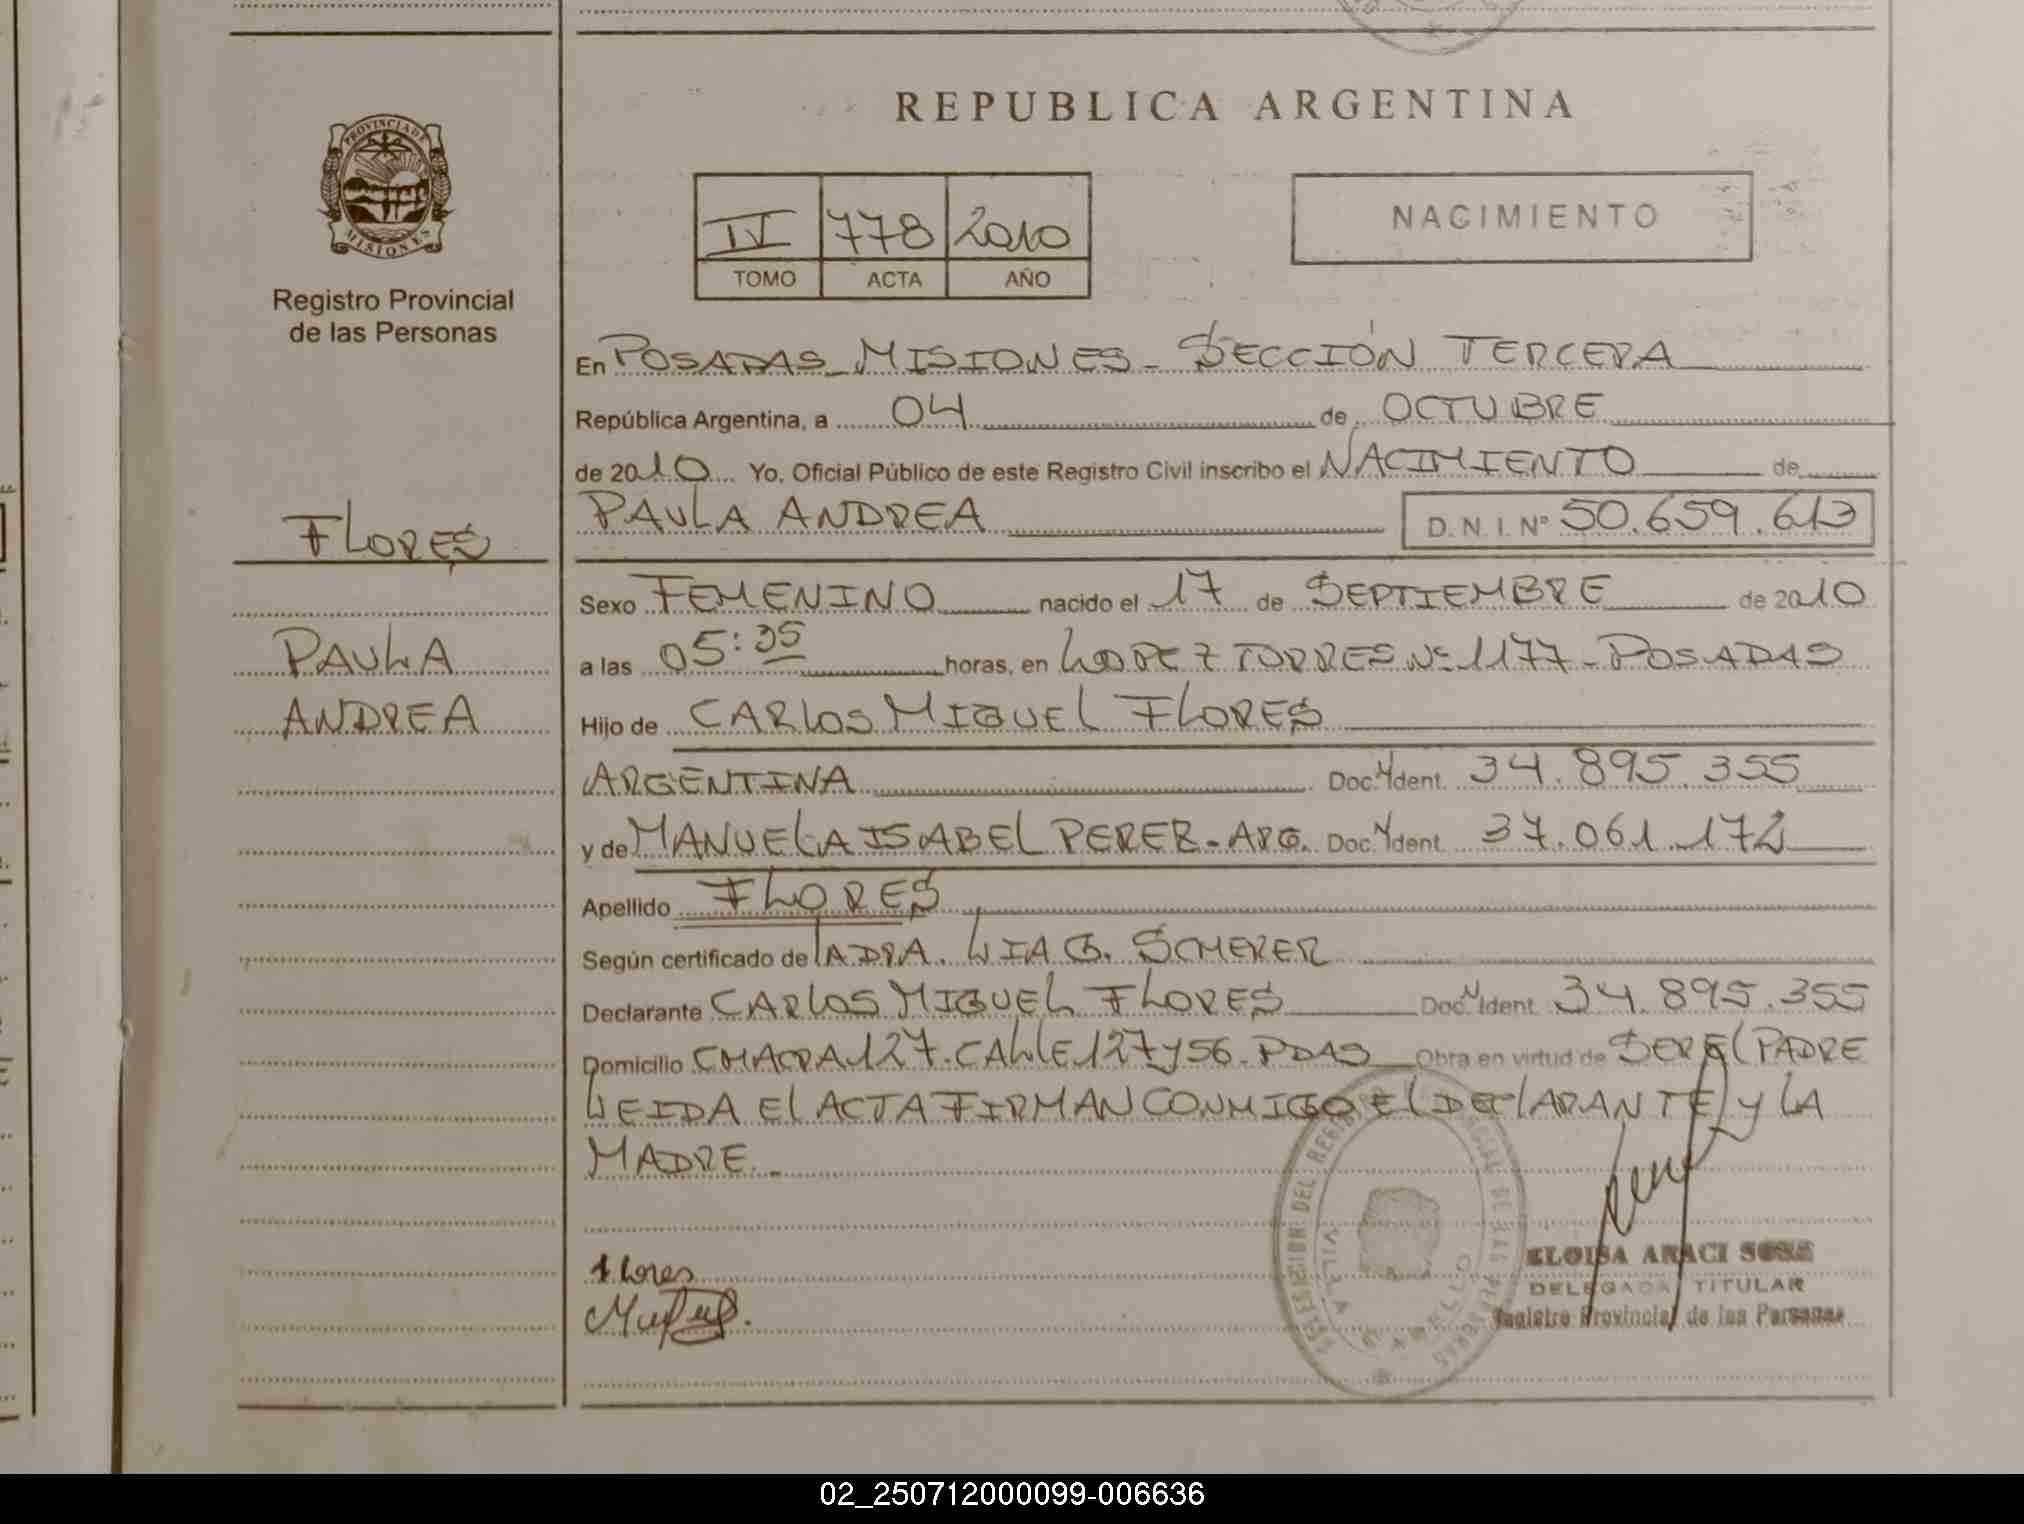 REPUBLICA ARGENTINA
PROVINCIA DE
MISIONES
Registro Provincial
de las Personas
IV 778 2010
TOMO ACTA AÑO
NACIMIENTO
En POSADAS - MISIONES - SECCIÓN TERCERA
República Argentina, a 04 de OCTUBRE
de 2010 Yo, Oficial Público de este Registro Civil inscribo el NACIMIENTO de
FLORES
PAULA ANDREA D.N.I. Nº 50.659.613
Sexo FEMENINO nacido el 17 de SEPTIEMBRE de 2010
PAULA
a las 05:35 horas, en LOPEZ TORRES Nº 1177 - POSADAS
ANDREA
Hijo de CARLOS MIGUEL FLORES
ARGENTINA Doc. Ident. 34.895.355
y de MANUELA ISABEL PEREZ - ARG. Doc. Ident. 37.061.172
Apellido FLORES
Según certificado de LA DRA. LIA G. SCHERER
Declarante CARLOS MIGUEL FLORES Doc. Ident. 34.895.355
Domicilio CHACRA 127. CALLE 127 y 56 - PDAS Obra en virtud de SER EL PADRE
LEIDA EL ACTA FIRMAN CONMIGO EL DECLARANTE y LA
MADRE.-
Flores
ELOISA ARACI SOSA
DELEGADA TITULAR
Registro Provincial de las Personas
02_250712000099-006636